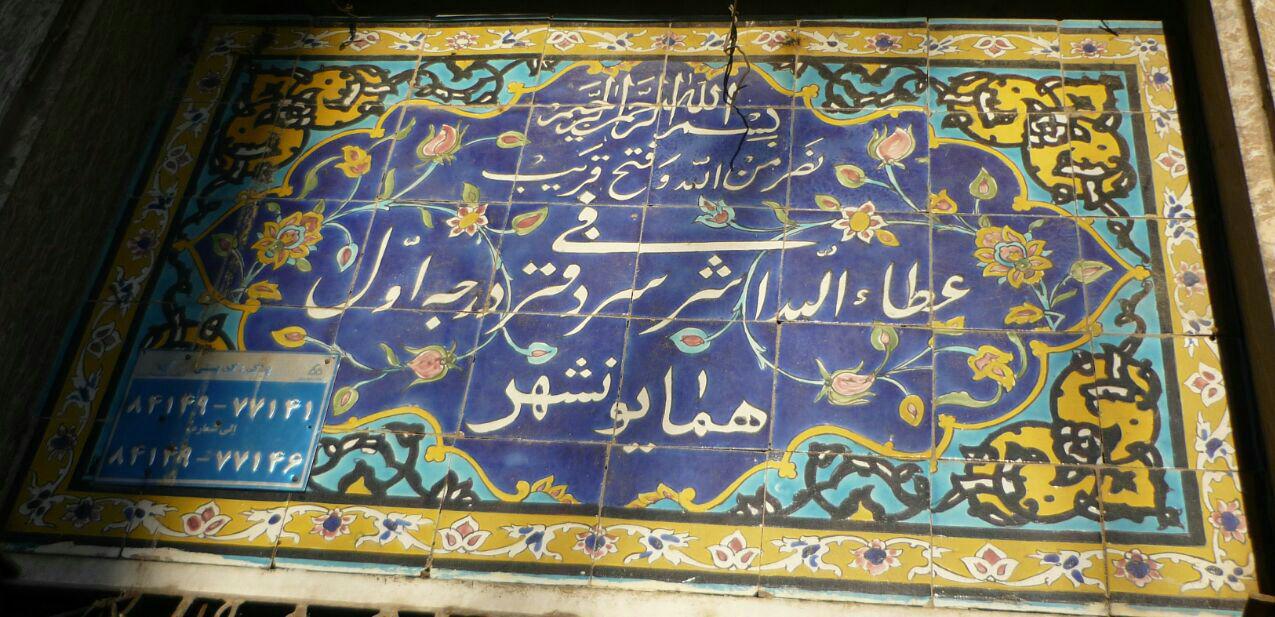 بسم الله الرحمن الرحیم
نصر من الله و فتح قریب
عطاء الله اشرفی سردفتر درجه اوّل
همایونشهر
۸۴۱۴۹-۷۷۱۴۱
الی
۸۴۱۴۹-۷۷۱۴۶